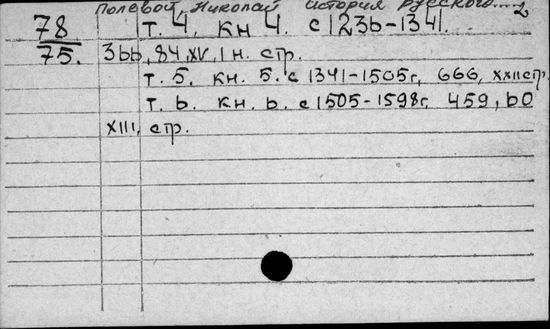 Полевой, Николай История русского.... 2
78 т. 4, кн 4. с 1236-1341.
75. 366, 84, XV, 1 н. стр.
т. 5. кн. 5. с 1341-1505г, 666, XXII стр.
т. 6. кн. 6. с 1505-1598г. 459, 60
XIII, стр.